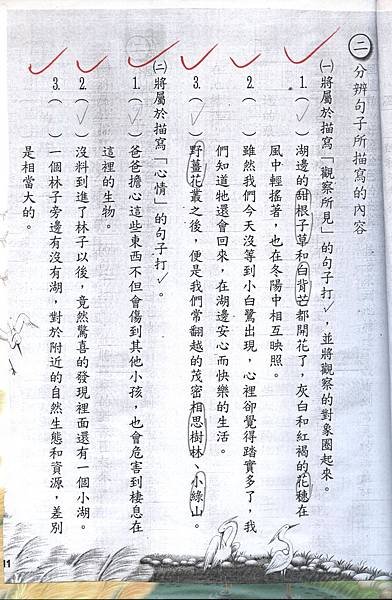 二 分辨句子所描寫的內容
㈠將屬於描寫「觀察所見」的句子打✓，並將觀察的對象圈起來。
1.（✓）湖邊的甜根子草和白背芒都開花了，灰白和紅褐的花穗在
風中輕搖著，也在冬陽中相互映照。
2.（ ）雖然我們今天沒等到小白鷺出現，心裡卻覺得踏實多了，我
們知道牠還會回來，在湖邊安心而快樂的生活。
3.（✓）野薑花叢之後，便是我們常翻越的茂密相思樹林、小綠山。
㈡將屬於描寫「心情」的句子打✓。
1.（✓）爸爸擔心這些東西不但會傷到其他小孩，也會危害到棲息在
這裡的生物。
2.（✓）沒料到進了林子以後，竟然驚喜的發現裡面還有一個小湖。
3.（ ）一個林子旁邊有沒有湖，對於附近的自然生態和資源，差別
是相當大的。
11